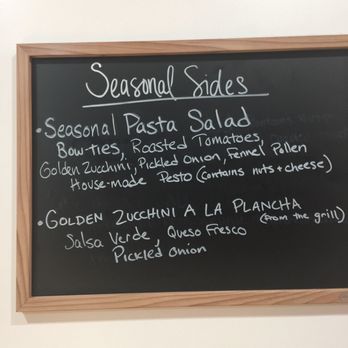 Seasonal Sides
• Seasonal Pasta Salad
Bow-ties, Roasted Tomatoes,
Golden Zucchini, Pickled Onion, Fennel Pollen
House-made Pesto (contains nuts + cheese)
• GOLDEN ZUCCHINI A LA PLANCHA
(from the grill)
Salsa Verde, Queso Fresco
Pickled Onion